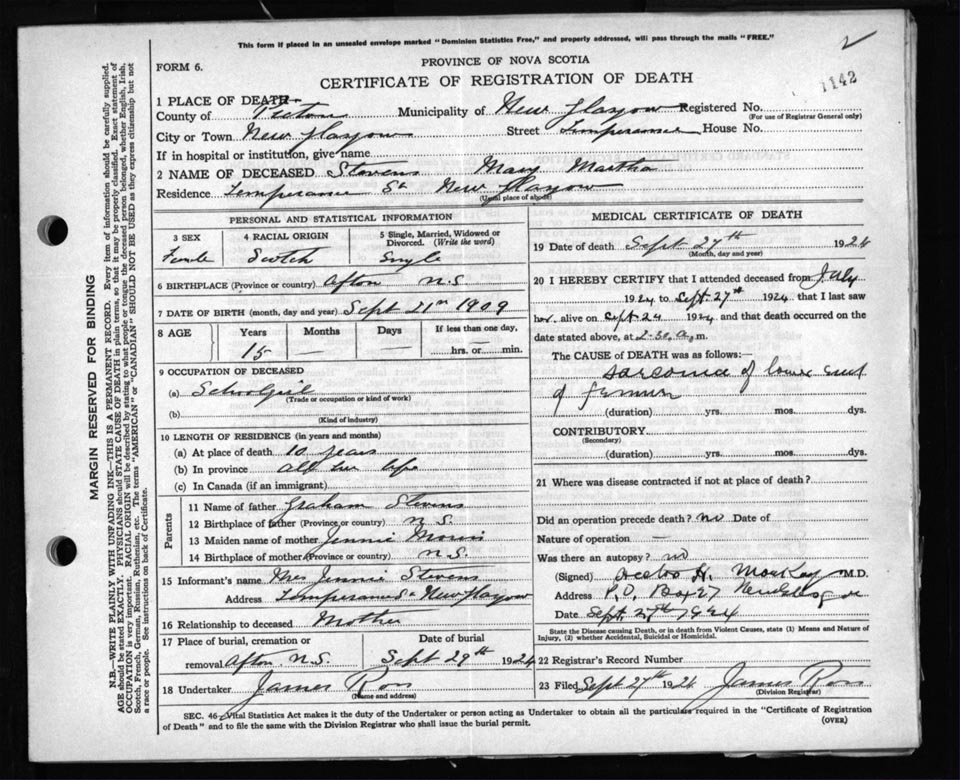 This form if placed in an unsealed envelope marked "Dominion Statistics Free," and properly addressed, will pass through the mails "FREE."
2
1142
FORM 6.
PROVINCE OF NOVA SCOTIA
CERTIFICATE OF REGISTRATION OF DEATH
1 PLACE OF DEATH
County of Pictou Municipality of New Glasgow Registered No.
(For use of Registrar General only)
City or Town New Glasgow Street Temperance House No.
If in hospital or institution, give name
2 NAME OF DECEASED Stevens Mary Martha
Residence Temperance St New Glasgow
(Usual place of abode)
PERSONAL AND STATISTICAL INFORMATION
3 SEX 4 RACIAL ORIGIN 5 Single, Married, Widowed or Divorced. (Write the word)
Female Scotch Single
6 BIRTHPLACE (Province or country) Afton N.S.
7 DATE OF BIRTH (month, day and year) Sept 21st 1909
8 AGE Years Months Days If less than one day,
15 — — hrs. or min.
9 OCCUPATION OF DECEASED
(a) Schoolgirl
(Trade or occupation or kind of work)
(b)
(Kind of industry)
10 LENGTH OF RESIDENCE (in years and months)
(a) At place of death 10 years
(b) In province all her life
(c) In Canada (if an immigrant)
Parents
11 Name of father Graham Stevens
12 Birthplace of father (Province or country) N.S.
13 Maiden name of mother Jennie
14 Birthplace of mother (Province or country) N.S.
15 Informant's name Mrs Jennie Stevens
Address Temperance St New Glasgow
16 Relationship to deceased Mother
17 Place of burial, cremation or Date of burial
removal Afton N.S. Sept 29th 1924
18 Undertaker James Ross
(Name and address)
MEDICAL CERTIFICATE OF DEATH
19 Date of death Sept 27th 1924
(Month, day and year)
20 I HEREBY CERTIFY that I attended deceased from July
1924 to Sept 27th 1924 that I last saw
her alive on Sept 24 1924 and that death occurred on the
date stated above, at 2-30 a.m.
The CAUSE OF DEATH was as follows:—
sarcoma of lower end
of femur
(duration) yrs. mos. dys.
CONTRIBUTORY
(Secondary)
(duration) yrs. mos. dys.
21 Where was disease contracted if not at place of death?
Did an operation precede death? no Date of
Nature of operation —
Was there an autopsy? no
(Signed) H. MacKay M.D.
Address P.O. Box 27 New Glasgow
Date Sept. 27th 1924
State the Disease causing Death, or in death from Violent Causes, state (1) Means and Nature of
Injury, (2) whether Accidental, Suicidal or Homicidal.
22 Registrar's Record Number
23 Filed Sept 27th 1924 James Ross
(Division Registrar)
SEC. 46—Vital Statistics Act makes it the duty of the Undertaker or person acting as Undertaker to obtain all the particulars required in the "Certificate of Registration
of Death" and to file the same with the Division Registrar who shall issue the burial permit. (OVER)
MARGIN RESERVED FOR BINDING
N.B.—WRITE PLAINLY WITH UNFADING INK—THIS IS A PERMANENT RECORD. Every item of information should be carefully supplied.
AGE should be stated EXACTLY. PHYSICIANS should STATE CAUSE OF DEATH in plain terms, so that it may be properly classified. Exact statement of
OCCUPATION is very important. RACIAL ORIGIN will be described by stating to what people or tongue the deceased person belonged, whether English, Irish,
Scotch, French, German, Russian, Ruthenian, etc. The terms "AMERICAN" or "CANADIAN" SHOULD NOT BE USED as they express citizenship but not
a race or people. See instructions on back of Certificate.